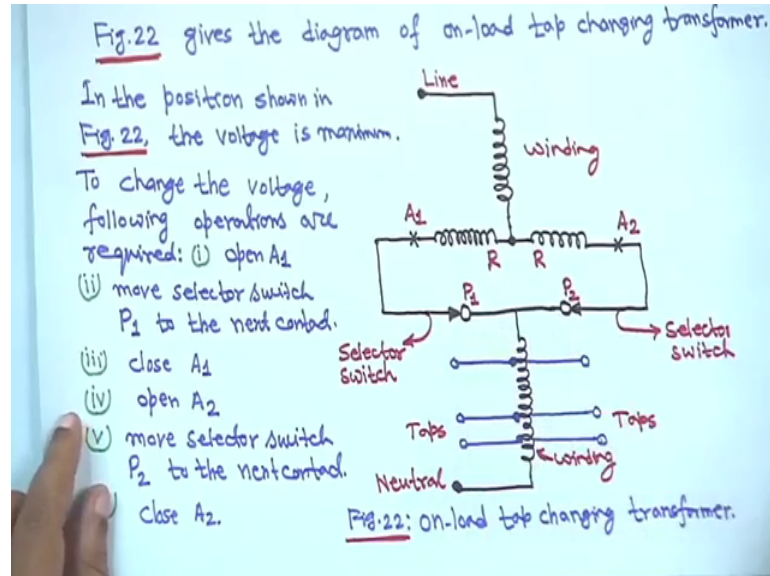 Fig.22 gives the diagram of on-load tap changing transformer.
In the position shown in
Fig. 22, the voltage is maximum.
To change the voltage,
following operations are
required: (i) open A1
(ii) move selector switch
P1 to the next contact.
(iii) close A1
(iv) open A2
(v) move selector switch
P2 to the next contact.
) close A2.
Line
winding
A1
A2
R R
P1
P2
Selector
switch
Selector
switch
Taps
Taps
winding
Neutral
Fig.22: on-load tap changing transformer.